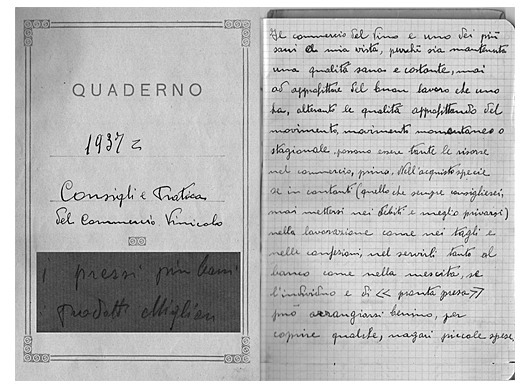 QUADERNO
1937
Consigli e Pratica
del Commercio Vinicolo
i prezzi più bassi
i prodotti migliori
Il commercio del Vino e uno dei più
sani a mia vista, perchè sia mantenuta
una qualità sana e costante, mai
ad approfittare del buon lavoro che uno
ha, alterando le qualità approfittando del
movimento, movimento momentaneo o
stagionale, possono essere tante le risorse
nel commercio, primo. Nell'acquisto specie
se in contanti (quello che sempre consiglierei,
mai mettersi nei debiti e meglio privarsi)
nella lavorazione come nei tagli e
nelle confezioni, nel servirli tanto al
banco come nella mescita, se
l'individuo e di << pronta presa >>
può arrangiarsi benino, per
coprire qualche, magari piccole spese